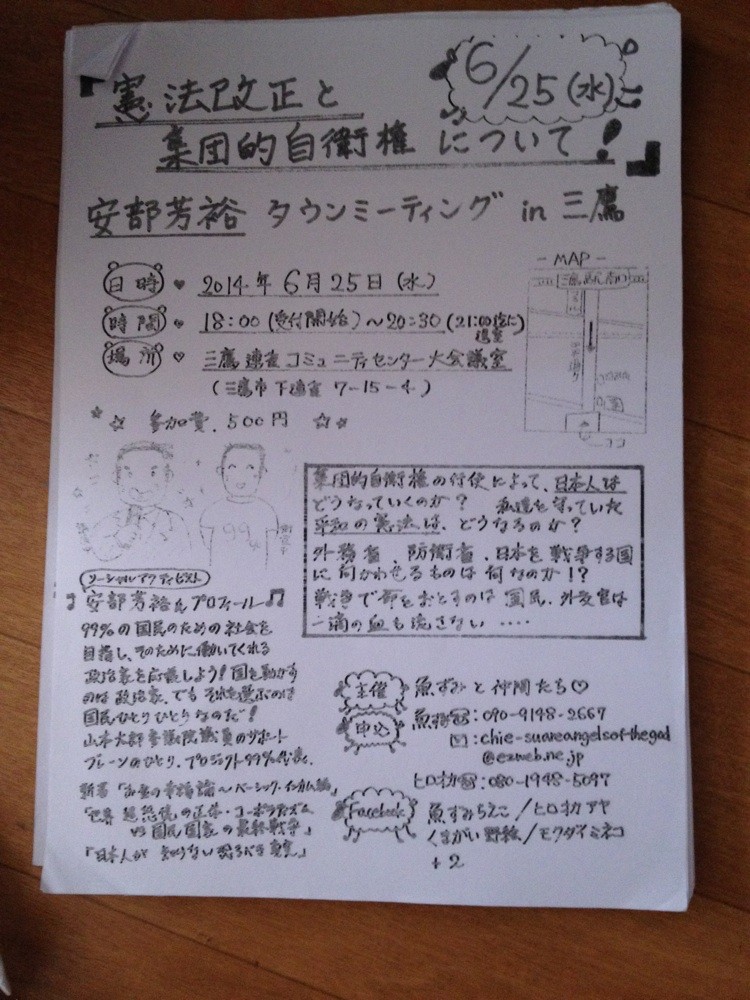 6/25(水)
「憲法改正と
集団的自衛権 について!」
安部芳裕 タウンミーティング in 三鷹
日時 ♥ 2014年6月25日(水)
時間 ♥ 18:00(受付開始)〜20:30(21:00迄に
退室)
場所 ♡ 三鷹連雀コミュニティセンター大会議室
(三鷹市下連雀 7-15-4)
☆☆ 参加費.500円 ☆☆
- MAP -
三鷹
ココ
99%
集団的自衛権の行使によって、日本人は
どうなっていくのか? 私達を守っていた
平和の憲法は、どうなるのか?
外務省、防衛省、日本を戦争する国
に向かわせるものは何なのか!?
戦争で命をおとすのは国民、外交官は
一滴の血も流さない ....
ソーシャルアクティビスト
♪安部芳裕氏プロフィール♫
99%の国民のための社会を
目指し、そのために働いてくれる
政治家を応援しよう!国を動かす
のは政治家、でもそれを選ぶのは
国民ひとりひとりなのだ!
山本太郎参議院議員のサポート
ブレーンのひとり。プロジェクト99%代表。
新著「お金の幸福論〜ベーシック・インカム編」
「世界超恐慌の正体・コーポラティズム
VS 国民国家の最終戦争」
「日本人が知らない恐るべき真実」
主催 魚ずみと仲間たち♡
申込 魚ずみ☎:090-9148-2667
✉:chie-suareangelsof-thegod
@ezweb.ne.jp
ヒロオカ☎:080-1948-5097
Facebook 魚すみちえこ/ヒロオカアヤ
くまがい野絵/モクダイミネコ
+2